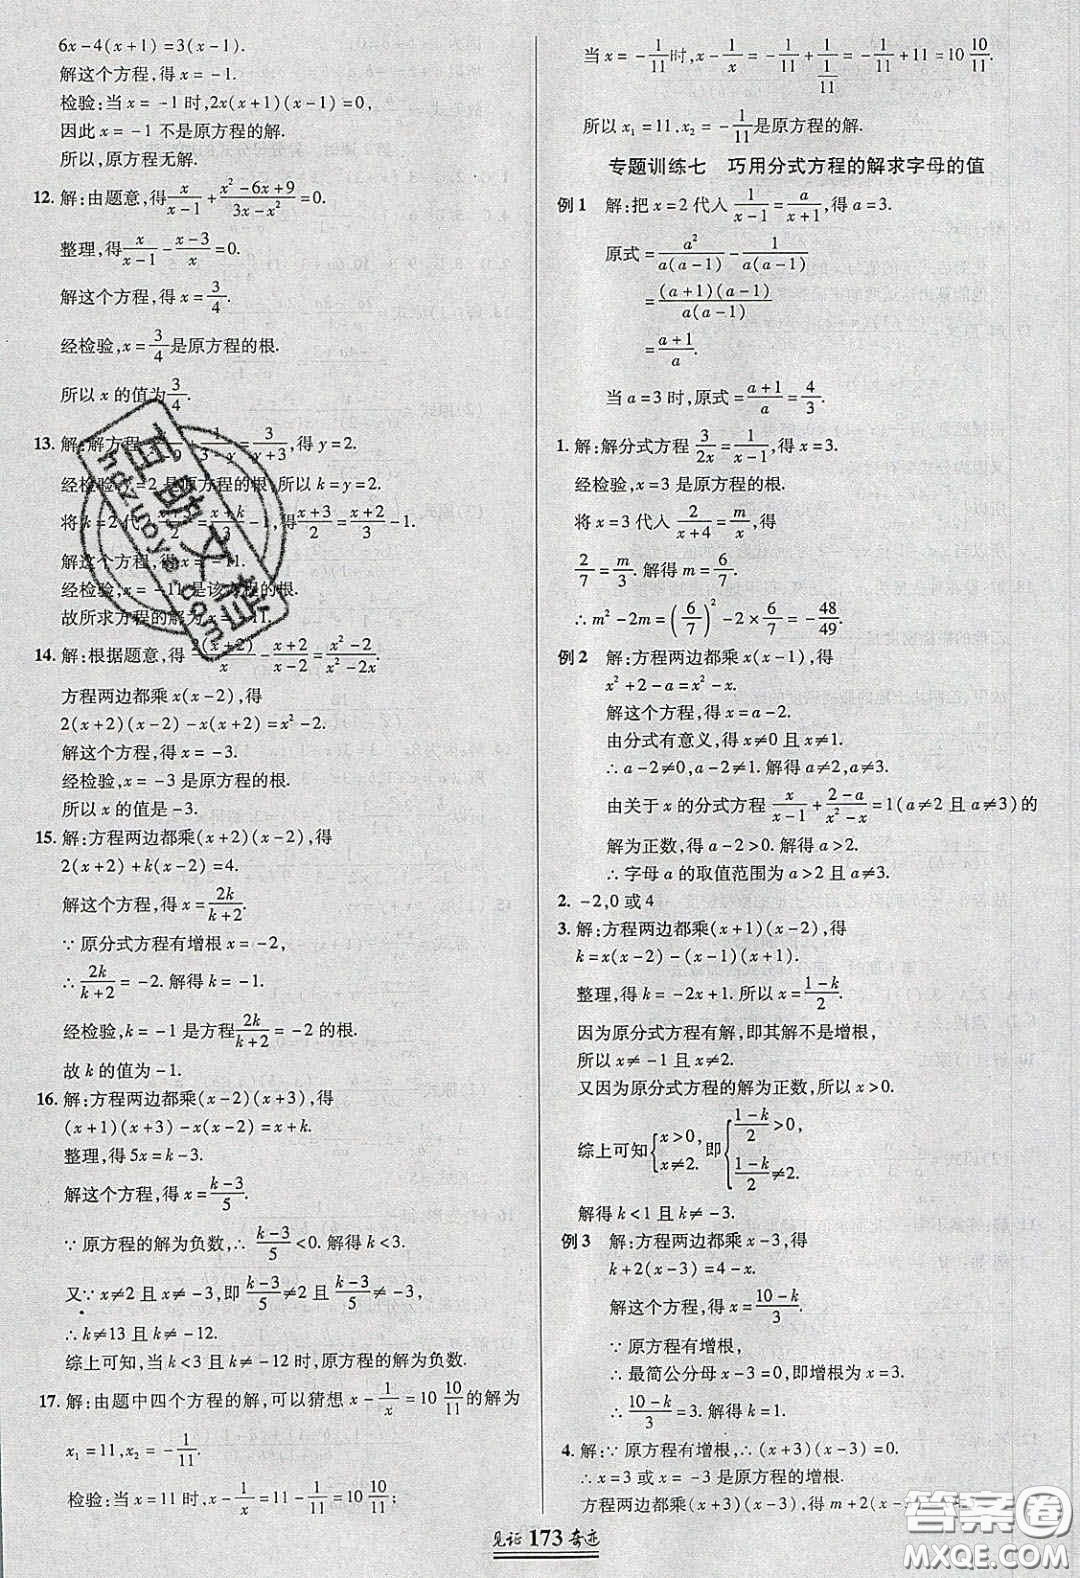 6x-4(x+1)=3(x-1).
解这个方程,得 x=-1.
检验:当 x=-1 时,2x(x+1)(x-1)=0,
因此 x=-1 不是原方程的解.
所以,原方程无解.
12. 解:由题意,得 x/(x-1)+(x²-6x+9)/(3x-x²)=0.
整理,得 x/(x-1)-(x-3)/x=0.
解这个方程,得 x=3/4.
经检验,x=3/4 是原方程的根.
所以 x 的值为 3/4.
13. 解:解方程 1/(y-3)=3/(y+3),得 y=2.
经检验,y=2 是原方程的根,所以 k=y=2.
将 k=2 代 (x+k)/3-1,得 (x+3)/2=(x+2)/3-1.
解这个方程,得 x=-11.
经检验,x=-11 是该方程的根.
故所求方程的解为 x=-11.
14. 解:根据题意,得 2(x+2)/x-(x+2)/(x-2)=(x²-2)/(x²-2x).
方程两边都乘 x(x-2),得
2(x+2)(x-2)-x(x+2)=x²-2.
解这个方程,得 x=-3.
经检验,x=-3 是原方程的根.
所以 x 的值是-3.
15. 解:方程两边都乘(x+2)(x-2),得
2(x+2)+k(x-2)=4.
解这个方程,得 x=2k/(k+2).
∵ 原分式方程有增根 x=-2,
∴ 2k/(k+2)=-2. 解得 k=-1.
经检验,k=-1 是方程 2k/(k+2)=-2 的根.
故 k 的值为-1.
16. 解:方程两边都乘(x-2)(x+3),得
(x+1)(x+3)-x(x-2)=x+k.
整理,得 5x=k-3.
解这个方程,得 x=(k-3)/5.
∵ 原方程的解为负数,∴ (k-3)/5<0. 解得 k<3.
又∵ x≠2 且 x≠-3,即 (k-3)/5≠2 且 (k-3)/5≠-3,
∴ k≠13 且 k≠-12.
综上可知,当 k<3 且 k≠-12 时,原方程的解为负数.
17. 解:由题中四个方程的解,可以猜想 x-1/x=10 10/11 的解为
x₁=11,x₂=-1/11.
检验:当 x=11 时,x-1/x=11-1/11=10 10/11;
当 x=-1/11 时,x-1/x=-1/11+1/(1/11)=-1/11+11=10 10/11.
所以 x₁=11,x₂=-1/11 是原方程的解.
专题训练七 巧用分式方程的解求字母的值
例 1 解:把 x=2 代入 1/(x-1)=a/(x+1),得 a=3.
原式=a²/(a(a-1))-1/(a(a-1))
=(a+1)(a-1)/(a(a-1))
=(a+1)/a.
当 a=3 时,原式=(a+1)/a=4/3.
1. 解:解分式方程 3/(2x)=1/(x-1),得 x=3.
经检验,x=3 是原方程的根.
将 x=3 代入 2/(x+4)=m/x,得
2/7=m/3. 解得 m=6/7.
∴ m²-2m=(6/7)²-2×6/7=-48/49.
例 2 解:方程两边都乘 x(x-1),得
x²+2-a=x²-x.
解这个方程,得 x=a-2.
由分式有意义,得 x≠0 且 x≠1.
∴ a-2≠0,a-2≠1. 解得 a≠2,a≠3.
由关于 x 的分式方程 x/(x-1)+(2-a)/(x²-x)=1(a≠2 且 a≠3)的
解为正数,得 a-2>0. 解得 a>2.
∴ 字母 a 的取值范围为 a>2 且 a≠3.
2. -2,0 或 4
3. 解:方程两边都乘(x+1)(x-2),得
k=x(x-2)-(x-1)(x+1).
整理,得 k=-2x+1. 所以 x=(1-k)/2.
因为原分式方程有解,即其解不是增根,
所以 x≠-1 且 x≠2.
又因为原分式方程的解为正数,所以 x>0.
综上可知{x>0, x≠2. 即{(1-k)/2>0, (1-k)/2≠2.
解得 k<1 且 k≠-3.
例 3 解:方程两边都乘 x-3,得
k+2(x-3)=4-x.
解这个方程,得 x=(10-k)/3.
∵ 原方程有增根,
∴ 最简公分母 x-3=0,即增根为 x=3.
∴ (10-k)/3=3. 解得 k=1.
4. 解:∵ 原方程有增根,∴ (x+3)(x-3)=0.
∴ x=3 或 x=-3 是原方程的增根.
方程两边都乘(x+3)(x-3),得 m+2(x-
见证 173 奇迹
百助文库
hdzuoye.com
答案圈
MXQE.COM